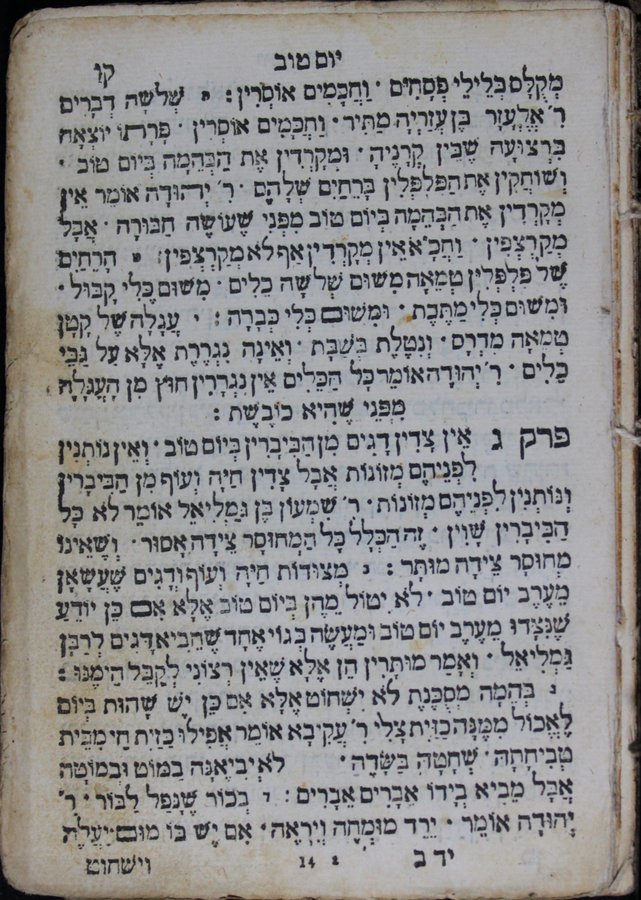 יום טוב
קו
מְקֻלָּס בְּלֵילֵי פְסָחִים · וַחֲכָמִים אוֹסְרִין : שְׁלשָׁה דְבָרִים
ר׳ אֶלְעָזָר בֶּן עֲזַרְיָה מַתִּיר · וַחֲכָמִים אוֹסְרִין · פָּרָתוֹ יוֹצְאָה
בִּרְצוּעָה שֶׁבֵּין קַרְנֶיהָ · וּמְקָרְדִין אֶת הַבְּהֵמָה בְּיוֹם טוֹב ·
וְשׁוֹחֲקִין אֶת הַפִּלְפְּלִין בָּרֵחַיִם שֶׁלָּהֶם · ר׳ יְהוּדָה אוֹמֵר אֵין
מְקָרְדִין אֶת הַבְּהֵמָה בְּיוֹם טוֹב מִפְּנֵי שֶׁעוֹשֶׂה חַבּוּרָה · אֲבָל
מְקַרְצְפִין · וַחֲכָ״א אֵין מְקָרְדִין אַף לֹא מְקַרְצְפִין : הָרֵחַיִם
שֶׁל פִּלְפְּלִין טְמֵאָה מִשּׁוּם שְׁלשָׁה כֵלִים · מִשּׁוּם כְּלִי קִבּוּל ·
וּמִשּׁוּם כְּלִי מַתֶּכֶת · וּמִשּׁוּם כְּלִי כְבָרָה : י עֲגָלָה שֶׁל קָטָן
טְמֵאָה מִדְרָס · וְנִטֶּלֶת בְּשַׁבָּת · וְאֵינָהּ נִגְרֶרֶת אֶלָּא עַל גַּבֵּי
כֵלִים · ר׳ יְהוּדָה אוֹמֵר כָּל הַכֵּלִים אֵין נִגְרָרִין חוּץ מִן הָעֲגָלָה
מִפְּנֵי שֶׁהִיא כוֹבֶשֶׁת :
פרק ג אֵין צָדִין דָּגִים מִן הַבִּיבָרִין בְּיוֹם טוֹב · וְאֵין נוֹתְנִין
לִפְנֵיהֶם מְזוֹנוֹת אֲבָל צָדִין חַיָּה וְעוֹף מִן הַבִּיבָרִין
וְנוֹתְנִין לִפְנֵיהֶם מְזוֹנוֹת · ר׳ שִׁמְעוֹן בֶּן גַּמְלִיאֵל אוֹמֵר לֹא כָל
הַבִּיבָרִין שָׁוִין · זֶה הַכְּלָל כָּל הַמְחוּסָּר צֵידָה אָסוּר · וְשֶׁאֵינוֹ
מְחוּסָּר צֵידָה מוּתָּר : מְצוּדוֹת חַיָּה וְעוֹף וְדָגִים שֶׁעֲשָׂאָן
מֵעֶרֶב יוֹם טוֹב · לֹא יִטּוֹל מֵהֶן בְּיוֹם טוֹב אֶלָּא אִם כֵּן יוֹדֵעַ
שֶׁנִּצּוֹדוּ מֵעֶרֶב יוֹם טוֹב וּמַעֲשֶׂה בְּגוֹי אֶחָד שֶׁהֵבִיא דָגִים לְרַבָּן
גַּמְלִיאֵל · וְאָמַר מוּתָּרִין הֵן אֶלָּא שֶׁאֵין רְצוֹנִי לְקַבֵּל הֵימֶנּוּ :
בְּהֵמָה מְסֻכֶּנֶת לֹא יִשְׁחוֹט אֶלָּא אִם כֵּן יֵשׁ שָׁהוּת בְּיוֹם
לֶאֱכוֹל מִמֶּנָּה כַּזַּיִת צָלִי ר׳ עֲקִיבָא אוֹמֵר אֲפִילּוּ כַּזַּיִת חַי מִבֵּית
טְבִיחָתָהּ · שְׁחָטָהּ בַּשָּׂדֶה · לֹא יְבִיאֶנָּה בַּמּוֹט וּבַמּוֹטָה
אֲבָל מֵבִיא בְיָדוֹ אֵבָרִים אֵבָרִים : בְּכוֹר שֶׁנָּפַל לַבּוֹר · ר׳
יְהוּדָה אוֹמֵר · יֵרֵד מוּמְחֶה וְיִרְאֶה · אִם יֶשׁ בּוֹ מוּם יַעֲלֶה
יד ב 14 2 וישחוט